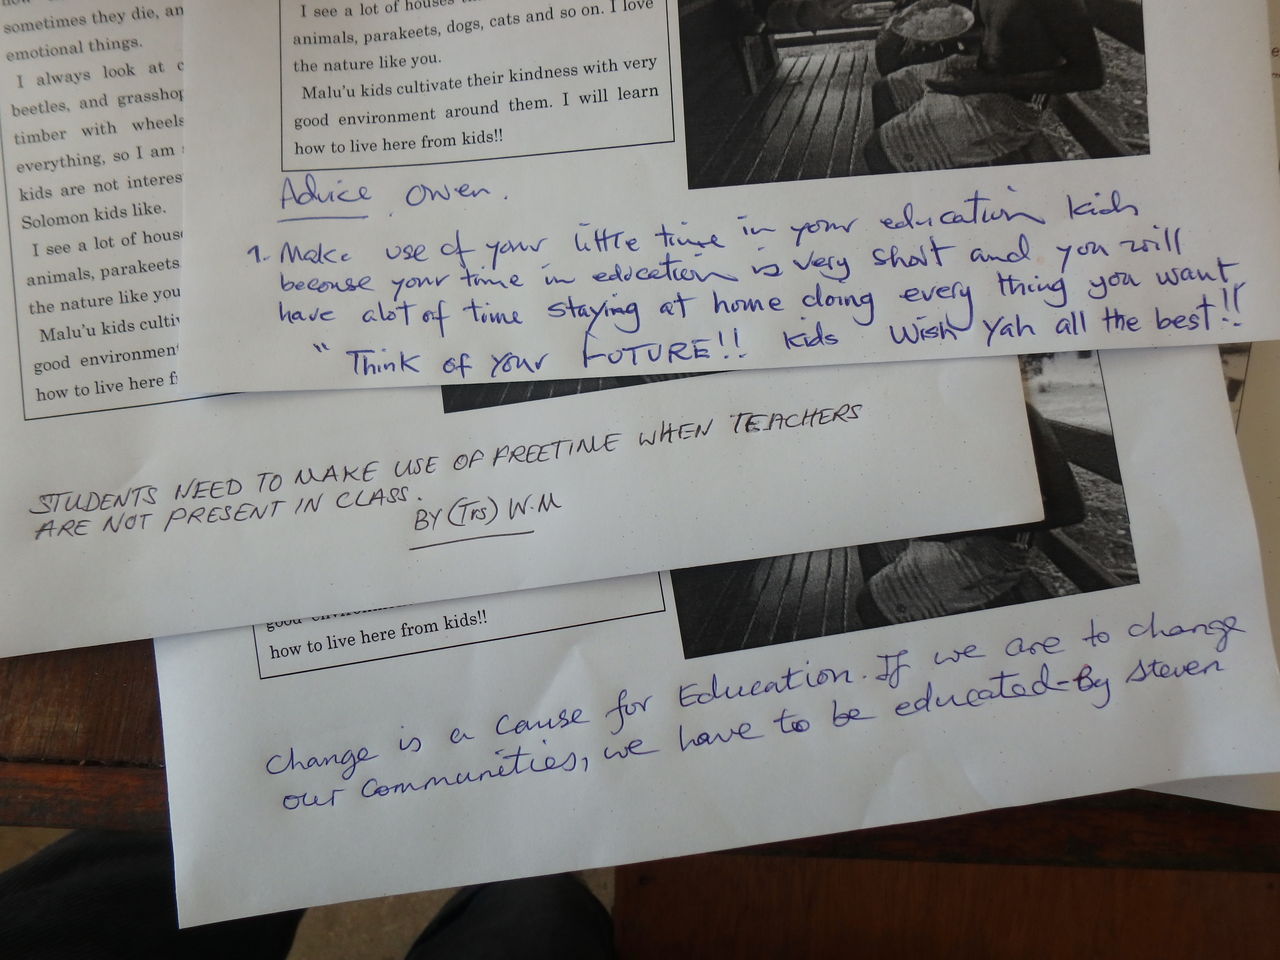 sometimes they die, an
emotional things.
I always look at c
beetles, and grasshop
timber with wheels
everything, so I am
kids are not interes
Solomon kids like.
I see a lot of hous
animals, parakeets
the nature like you
Malu'u kids culti
good environment
how to live here f
I see a lot of houses
animals, parakeets, dogs, cats and so on. I love
the nature like you.
Malu'u kids cultivate their kindness with very
good environment around them. I will learn
how to live here from kids!!
Advice Owen.
1. Make use of your little time in your education kids
because your time in education is very short and you will
have alot of time staying at home doing every thing you want
" Think of your FUTURE!! kids Wish Yah all the best!!
STUDENTS NEED TO MAKE USE OF FREETIME WHEN TEACHERS
ARE NOT PRESENT IN CLASS.
BY (Trs) W.M
how to live here from kids!!
Change is a cause for Education. If we are to change
our communities, we have to be educated-By Steven